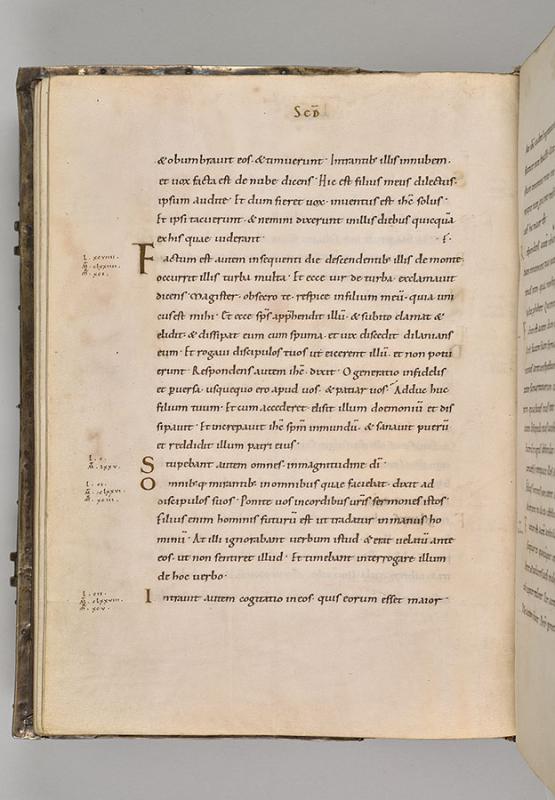 SCD̄
& obumbrauit eos · & timuerunt · Intrantib; illis in nubem ·
et uox facta est de nube dicens · Hic est filius meus dilectus ·
ipsum audite · Et dum fieret uox · inuentus est ihc̄ solus ·
Et ipsi tacuerunt · & nemini dixerunt in illis diebus quicquā
ex his quae uiderant ·
Factum est autem in sequenti die descendentib; illis de monte
occurrit illis turba multa · Et ecce uir de turba exclamauit
dicens · Magister · obsecro te · respice in filium meū · quia uni
cus est mihi · Et ecce sp̄s apphendit illū · & subito clamat &
elidit · & dissipat eum cum spuma · et uix discedit dilanians
eum · Et rogaui discipulos tuos ut eicerent illū · et non potu
erunt · Respondens autem ihc̄ · dixit · O generatio infidelis
et puersa · usquequo ero apud uos · & patiar uos · Adduc huc
filium tuum · Et cum accederet elisit illum daemoniū et dis
sipauit · Et increpauit ihc̄ sp̄m inmundū · & sanauit puerū
et reddidit illum patri eius ·
Stupebant autem omnes in magnitudine dī ·
Omnibusq; mirantib; in omnibus quae faciebat · dixit ad
discipulos suos · Ponite uos in cordibus uris̄ sermones istos ·
Filius enim hominis futurū est ut tradatur in manus ho
minū · At illi ignorabant uerbum istud · & erat uelatū ante
eos · ut non sentiret illud · Et timebant interrogare illum
de hoc uerbo ·
Intrauit autem cogitatio in eos · quis eorum esset maior ·